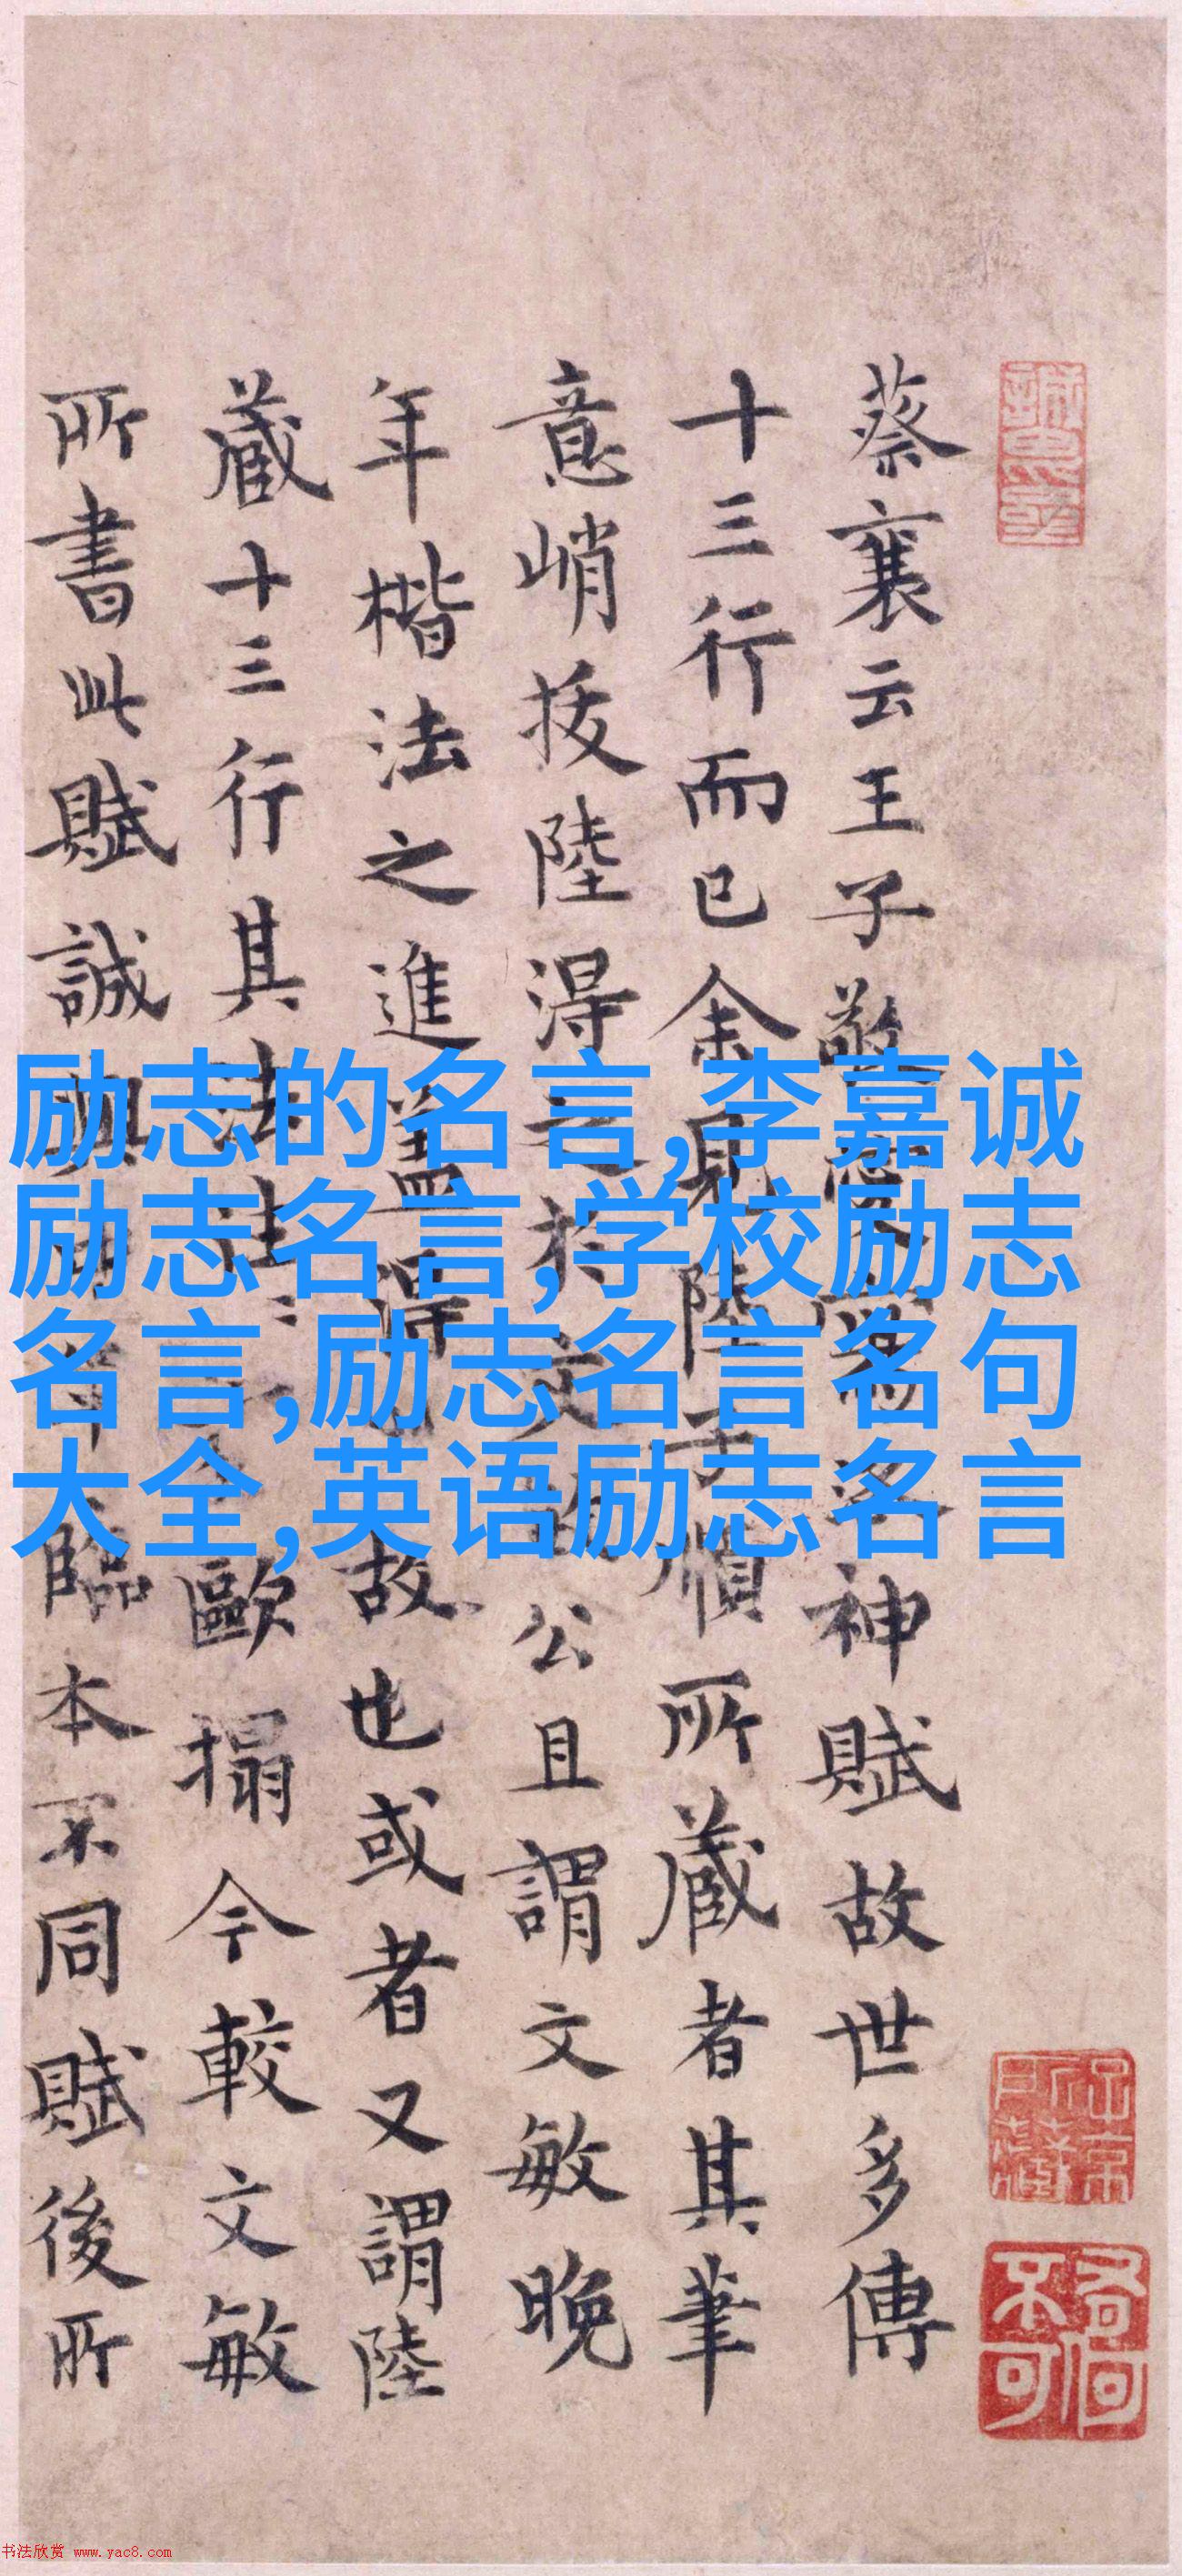 蔡襄云王子敬神賦故世多傳
十三行而已余見陸子順所藏者其筆
意峭拔陸得於文公且謂文敏晚
年楷法之進蓋得故也或者又謂陸
藏十三行其法歐搨今較文敏
所書此賦誠與臨本不同賦後所
励志的名言,李嘉诚
励志名言,学校励志
名言,励志名言名句
大全,英语励志名言
书法欣赏 www.yac8.com